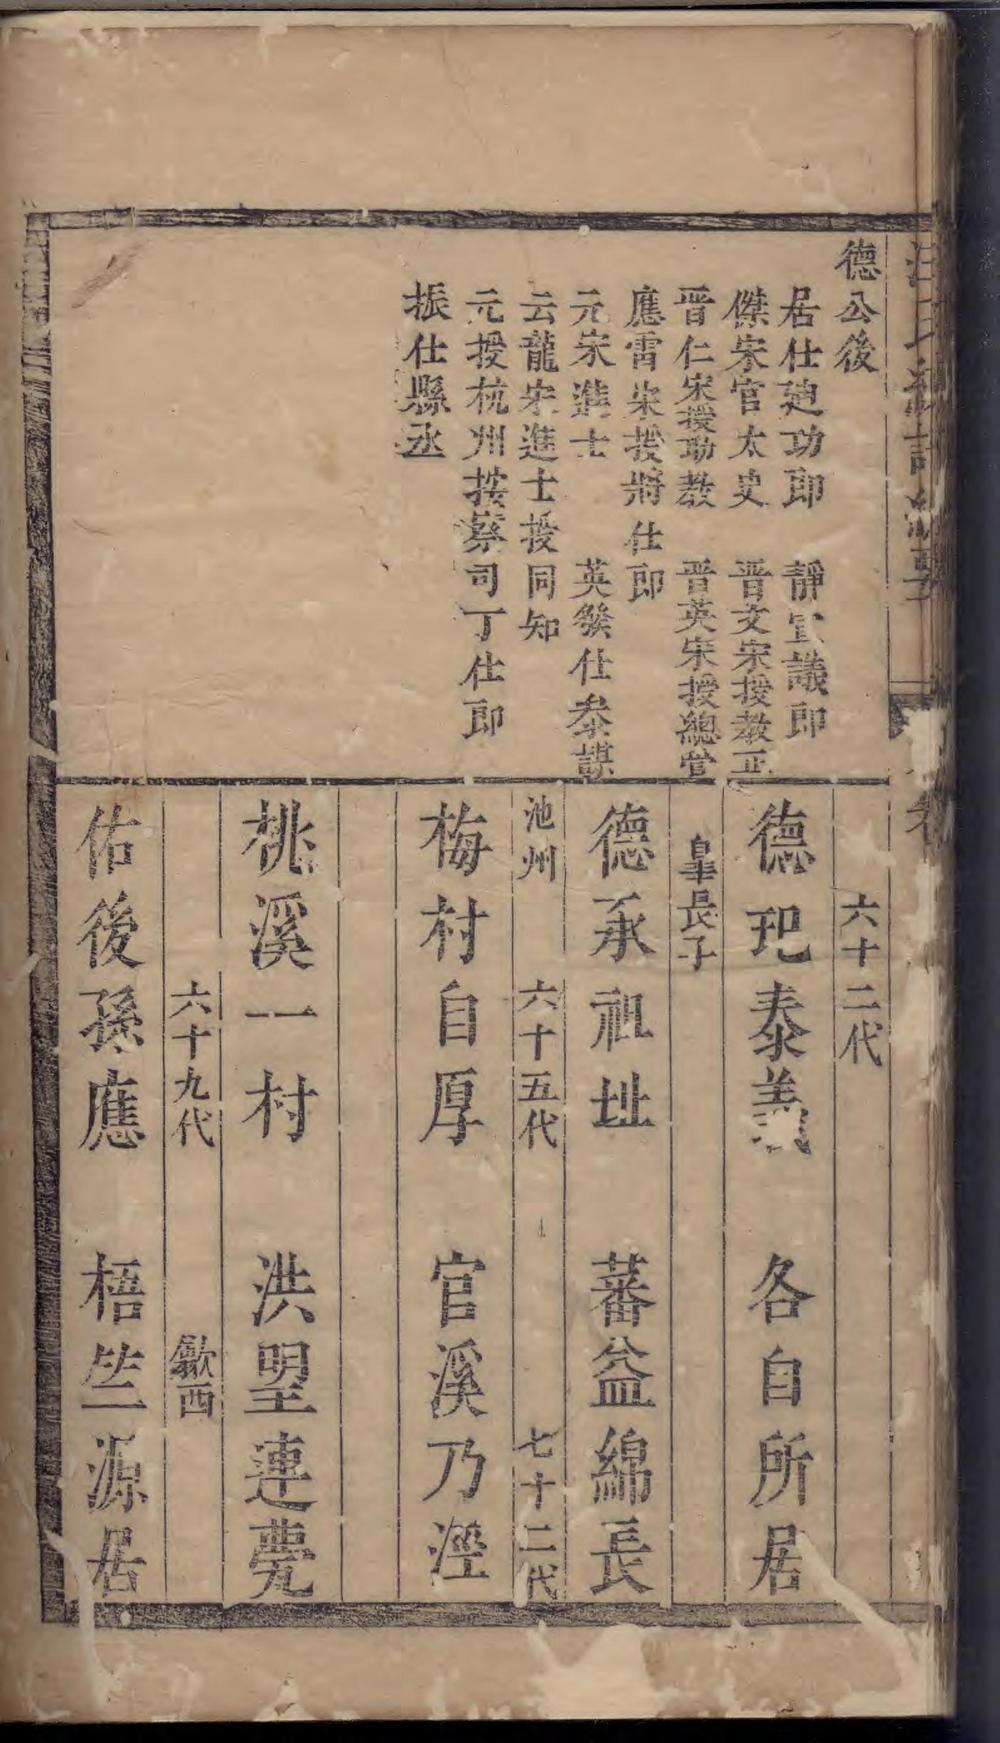 德公後
居仕廸功郎　靜宣議郎
傑宋官太史　晋文宋授教正
晋仁宋授助教　晋英宋授總管
應雷宋授將仕郎
元宋進士　英發仕叅謀
云龍宋進士授同知
元授杭州按察司丁仕郎
振仕縣丞
六十二代
德玘泰義　各自所居
皐長子
德承祖址　蕃益綿長
池州　六十五代　七十二代
梅村自厚　官溪乃溼
桃溪一村　洪朢連甍
六十九代　歙西
佑後孫應　梧竺源居